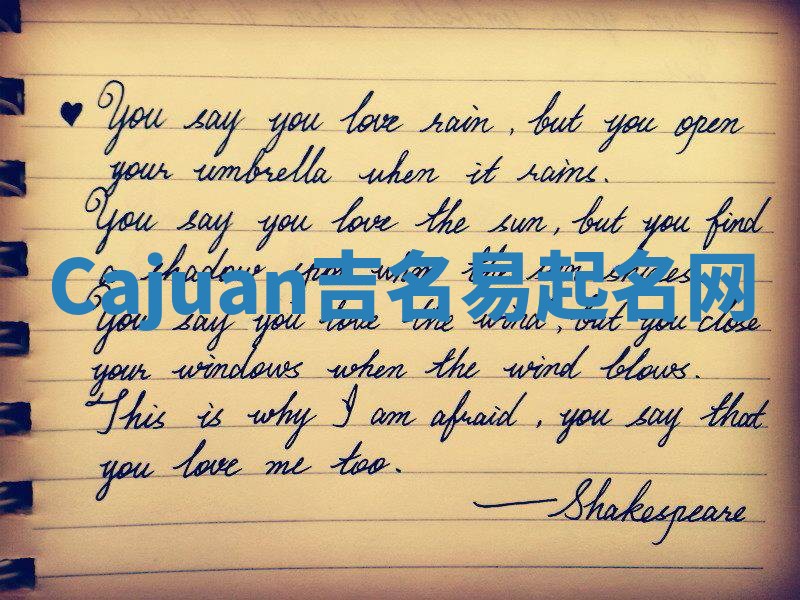 ♥ You say you love rain, but you open
your umbrella when it rains.
You say you love the sun, but you find
a shadow spot when the sun shines.
Cajuan吉名易起名网
You say you love the wind, but you close
your windows when the wind blows.
This is why I am afraid, you say that
you love me too.
—Shakespeare